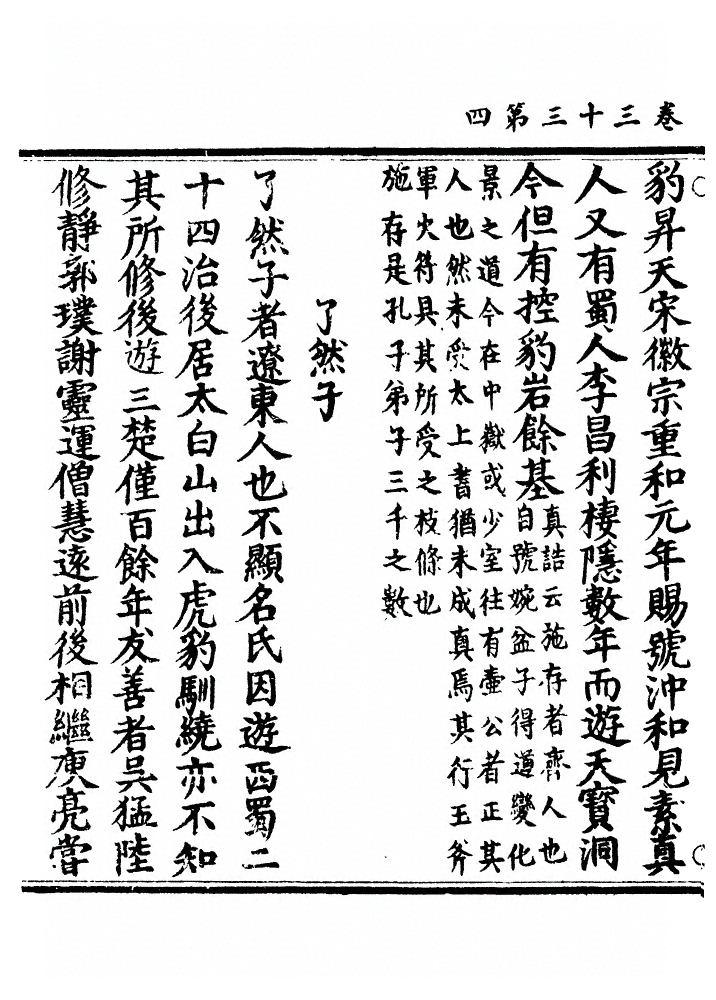 卷三十三第四
豹昇天宋徽宗重和元年賜號沖和見素真
人又有蜀人李昌利棲隱數年而遊天寶洞
今但有控豹岩餘基真誥云施存者齊人也
自號婉盆子得道變化
景之道今在中嶽或少室往有壺公者正其
人也然未受太上書猶未成真焉其行玉斧
軍火符具其所受之枝條也
施存是孔子弟子三千之數
了然子
了然子者遼東人也不顯名氏因遊西蜀二
十四治後居太白山出入虎豹馴繞亦不知
其所修後遊三楚僅百餘年友善者吳猛陸
修靜郭璞謝靈運僧慧遠前後相繼庾亮嘗